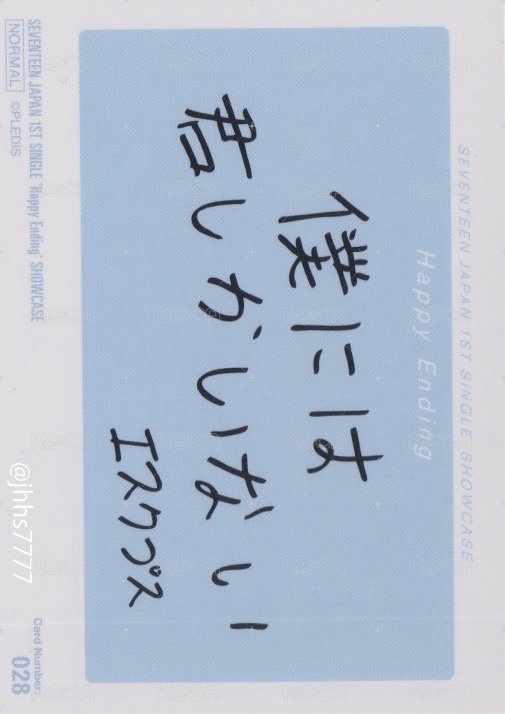 SEVENTEEN JAPAN 1ST SINGLE SHOWCASE
Happy Ending
僕には
君しかいない
エスクプス
SEVENTEEN JAPAN 1ST SINGLE 'Happy Ending' SHOWCASE
NORMAL ©PLEDIS
Card Number:
028
@jhhs77777